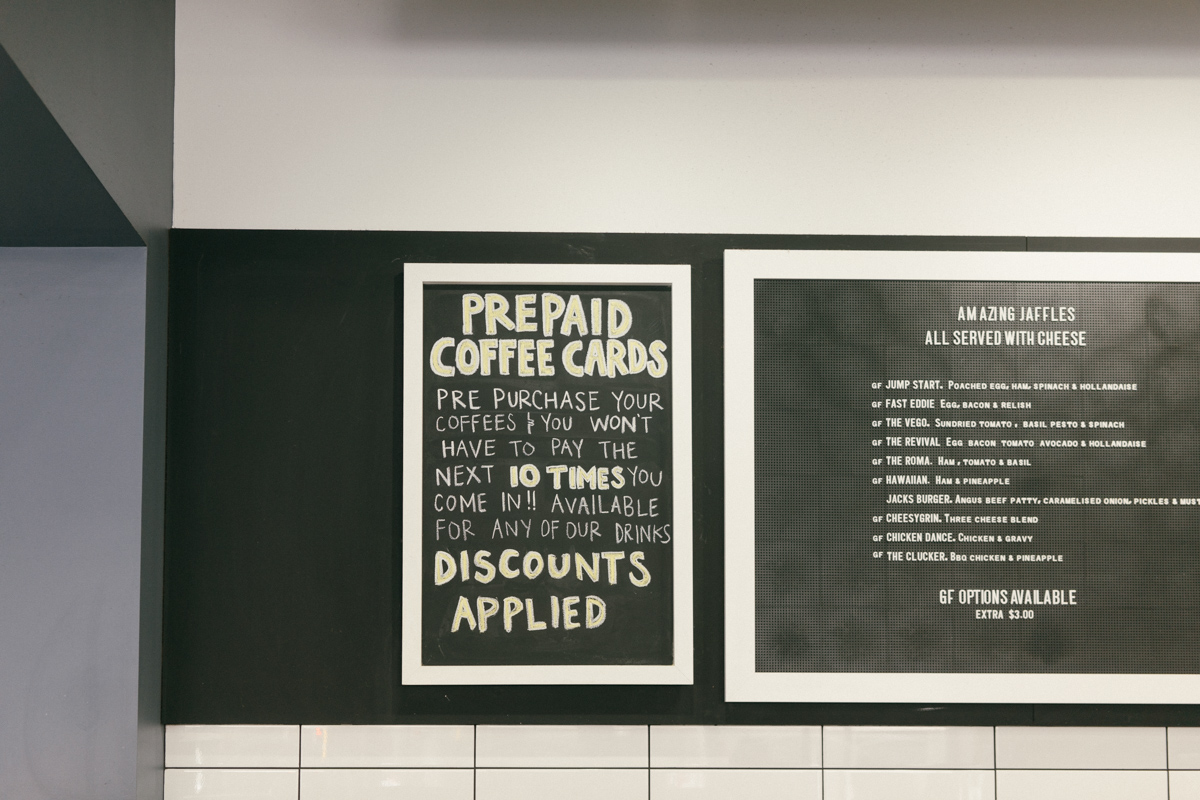 PREPAID
COFFEE CARDS
PRE PURCHASE YOUR
COFFEES & YOU WON'T
HAVE TO PAY THE
NEXT 10 TIMES YOU
COME IN!! AVAILABLE
FOR ANY OF OUR DRINKS
DISCOUNTS
APPLIED
AMAZING JAFFLES
ALL SERVED WITH CHEESE
GF JUMP START. POACHED EGG, HAM, SPINACH & HOLLANDAISE
GF FAST EDDIE EGG, BACON & RELISH
GF THE VEGO. SUNDRIED TOMATO, BASIL PESTO & SPINACH
GF THE REVIVAL EGG BACON TOMATO AVOCADO & HOLLANDAISE
GF THE ROMA. HAM, TOMATO & BASIL
GF HAWAIIAN. HAM & PINEAPPLE
JACKS BURGER. ANGUS BEEF PATTY, CARAMELISED ONION, PICKLES & MUST
GF CHEESYGRIN. THREE CHEESE BLEND
GF CHICKEN DANCE. CHICKEN & GRAVY
GF THE CLUCKER. BBQ CHICKEN & PINEAPPLE
GF OPTIONS AVAILABLE
EXTRA $3.00